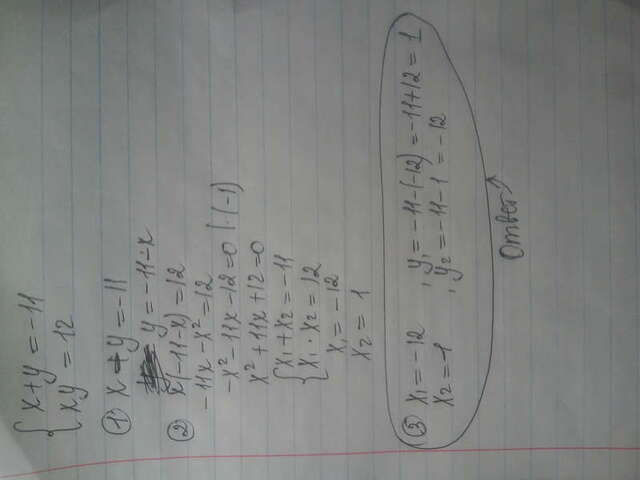 { x+y = -11
xy = 12
① x + y = -11
y = -11-x
② x(-11-x) = 12
-11x-x² = 12
-x²-11x-12=0 |·(-1)
x²+11x+12=0
{ x₁+x₂ = -11
x₁·x₂ = 12
x₁ = -12
x₂ = 1
③ x₁ = -12 , y₁ = -11-(-12) = -11+12 = 1
x₂ = 1 , y₂ = -11-1 = -12
Ответ